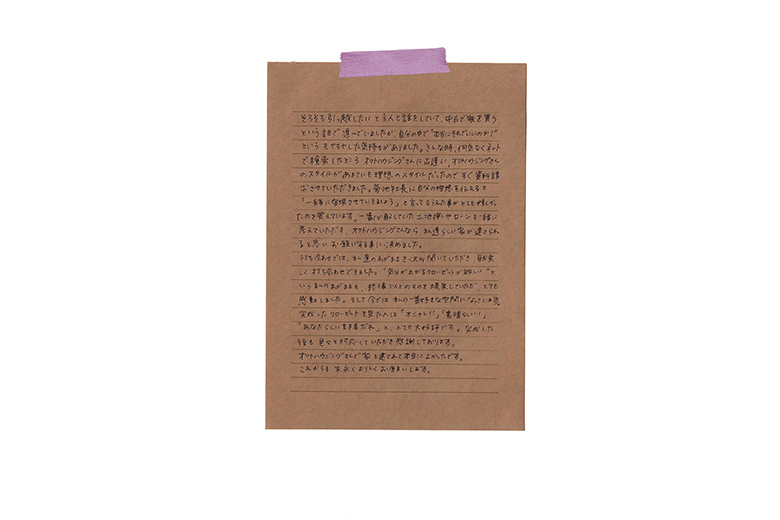 そろそろ引っ越したいと主人と話をしていて、中古で家を買う
という話で進んでいましたが、自分の中で"本当にそれでいいのか!?"
というモヤモヤした気持ちがありました。そんな時、何気なくネット
で検索したところオツハウジングさんに出逢い、オツハウジングさん
のスタイルがあまりにも理想のスタイルだったのですぐ資料請
求させていただきました。菊池社長に自分の理想を伝えると
「一緒に冒険させていきましょう」と言ってもらえた事がとても嬉しかっ
たのを覚えています。一番心配していた土地探しやローンも一緒に
考えていただき、オツハウジングさんなら私達らしい家が建てられ
ると思いお願いする事に決めました。
打ち合わせでは、私達のわがままを沢山聞いていただき、毎回楽
しく打ち合わせできました。"気分が上がるクローゼットが欲しい"と
いう私のわがままも、想像以上のものを提案していただき、とても
感動しました。そして今では私の一番好きな空間になっています。
完成したクローゼットを見た人は「オシャレ!」「素晴らしい!」
「あなたらしい部屋だね」と、とても大好評です。完成した
後も色々と対応していただき感謝しております。
オツハウジングさんで家を建てれて本当によかったです。
これからも末永くよろしくお願いします。